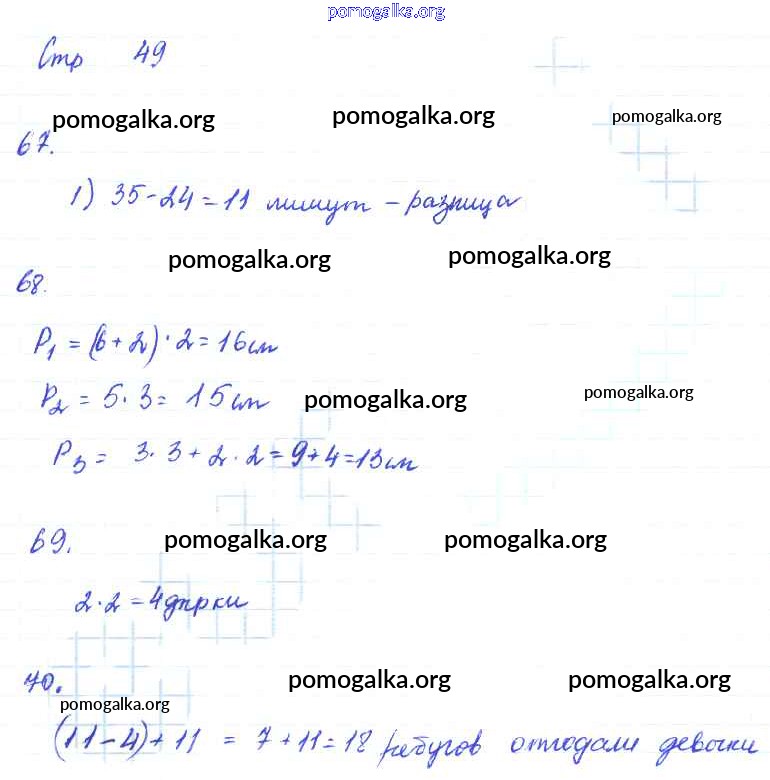 pomogalka.org
Стр 49
pomogalka.org pomogalka.org pomogalka.org
67.
1) 35-24=11 минут - разница
pomogalka.org pomogalka.org
68.
P1 = (6+2)·2=16см
P2 = 5·3= 15см
pomogalka.org pomogalka.org
P3 = 3·3+2·2=9+4=13см
69.
pomogalka.org pomogalka.org
2·2=4дырки
70.
pomogalka.org pomogalka.org
pomogalka.org
(11-4)+11 = 7+11=18 ребусов отгадали девочки